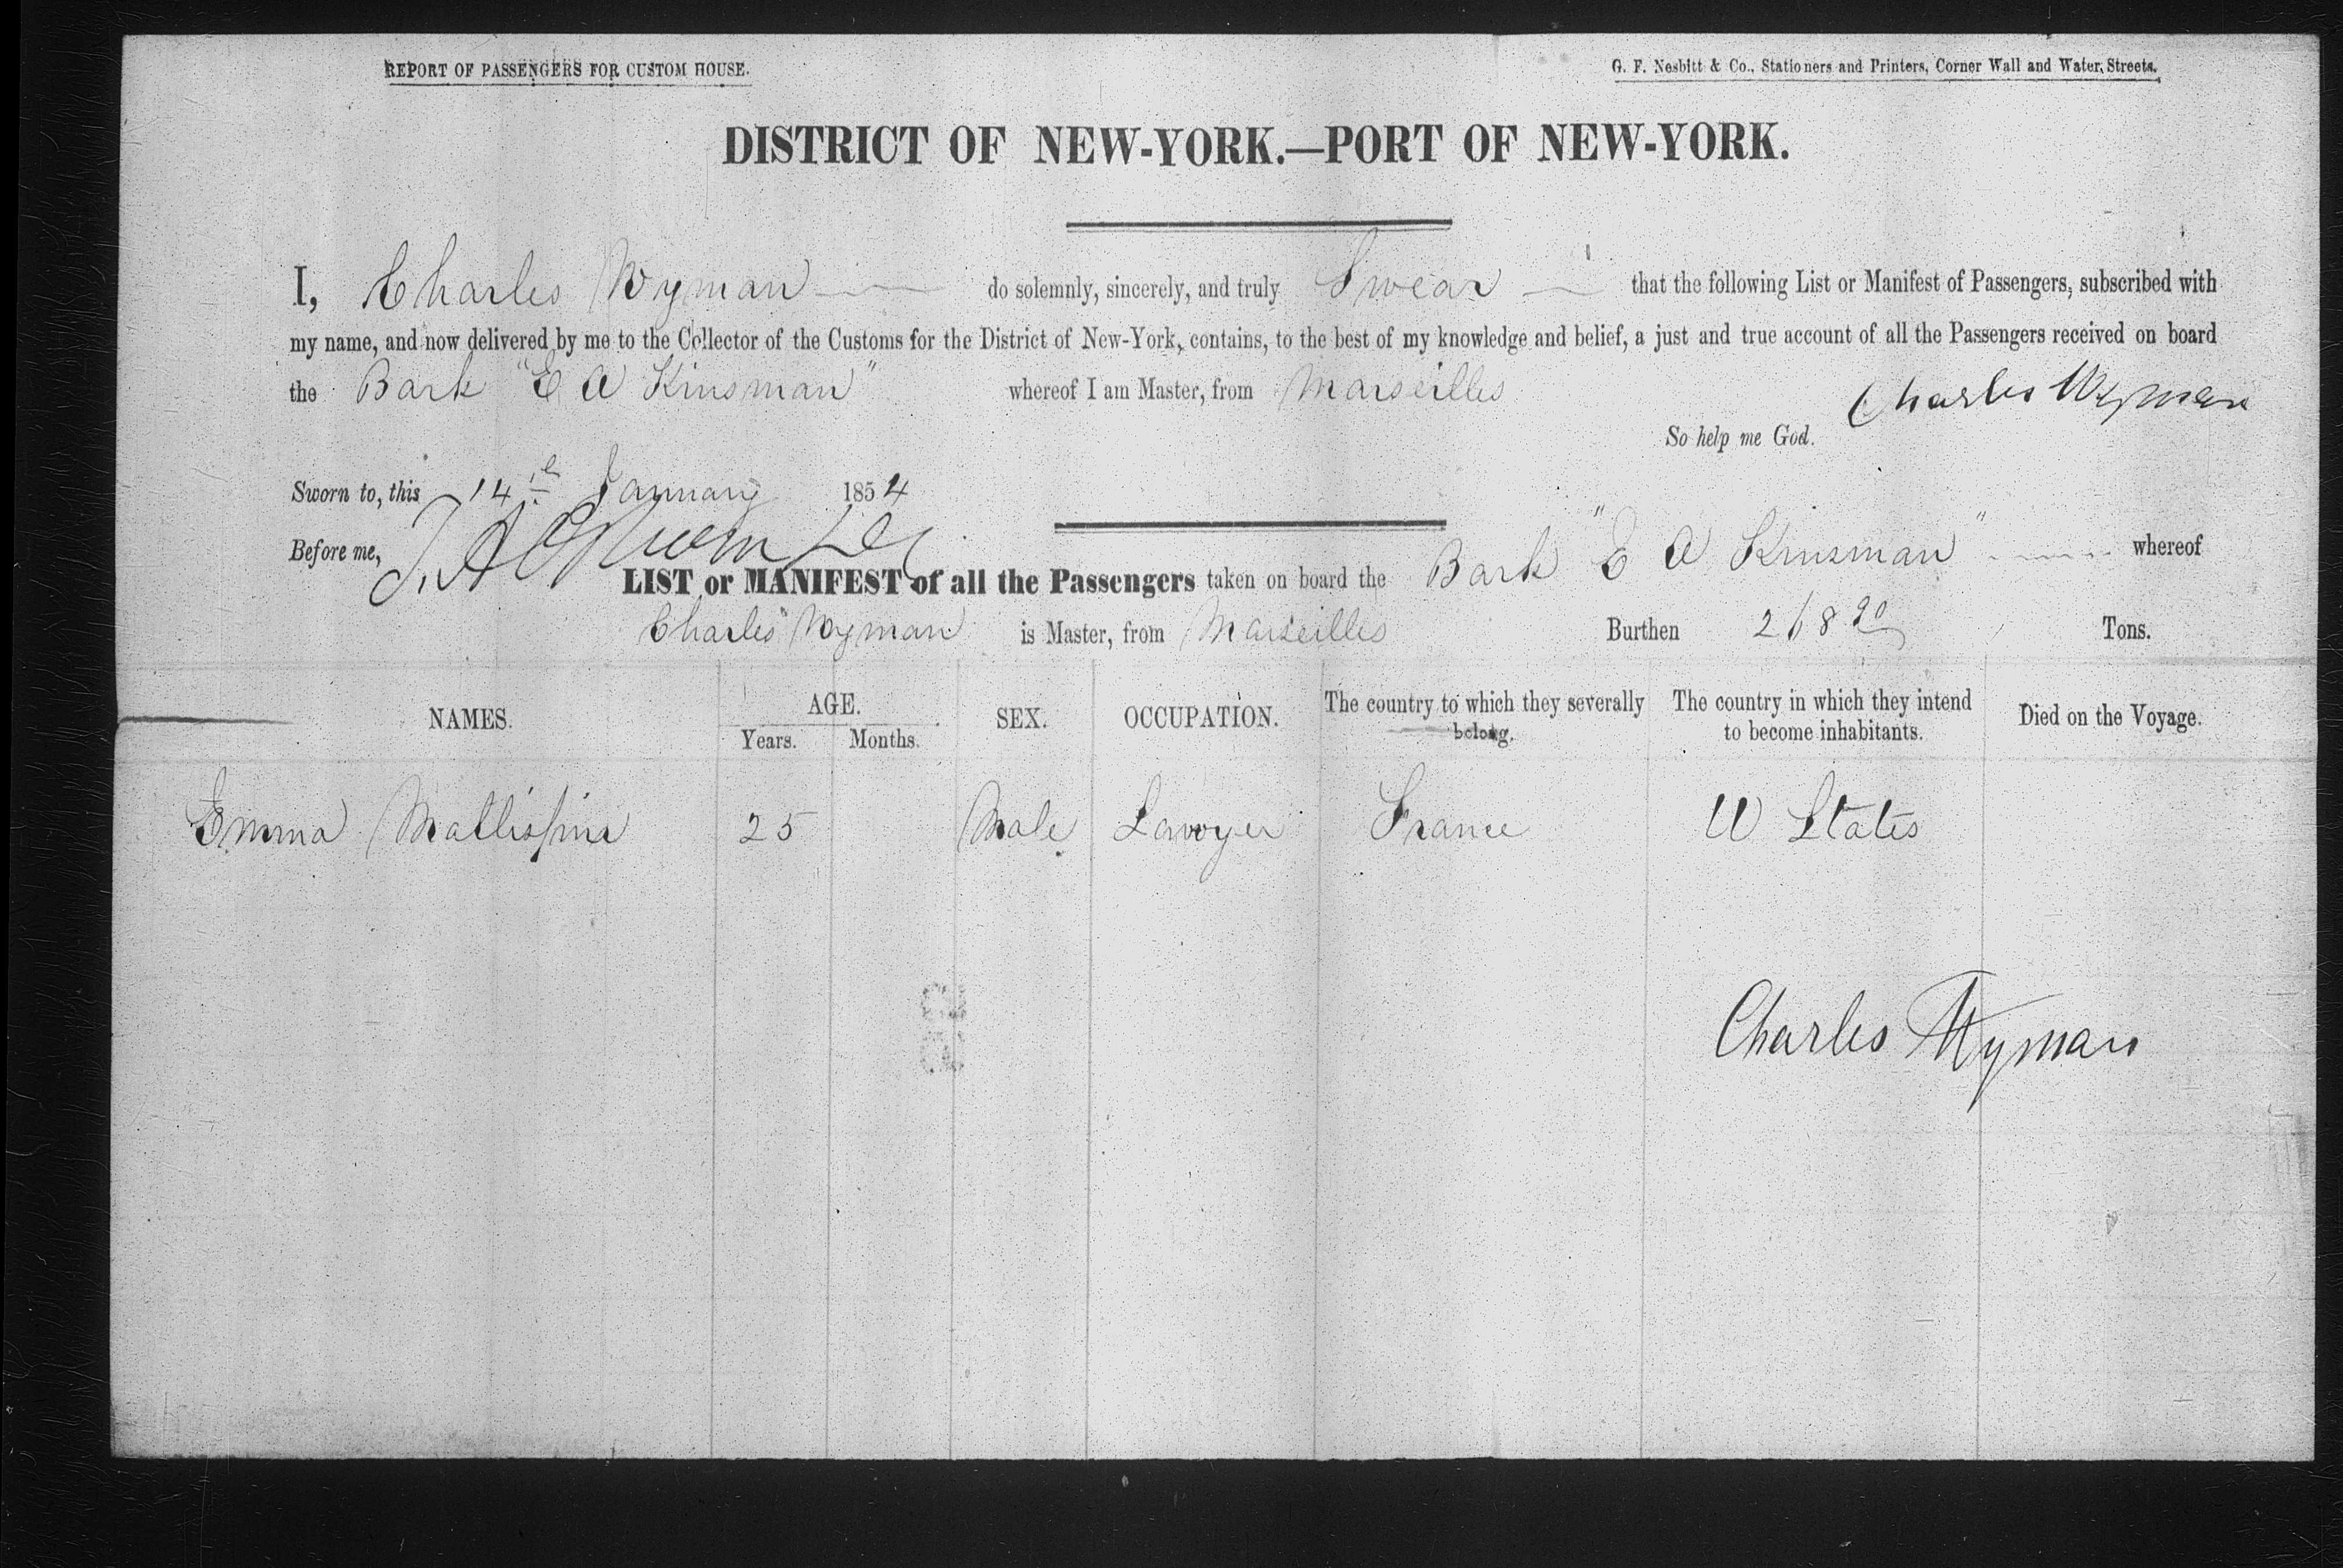 REPORT OF PASSENGERS FOR CUSTOM HOUSE.
G. F. Nesbitt & Co., Stationers and Printers, Corner Wall and Water, Streets.
DISTRICT OF NEW-YORK.—PORT OF NEW-YORK.
I, Charles Wyman do solemnly, sincerely, and truly Swear that the following List or Manifest of Passengers, subscribed with
my name, and now delivered by me to the Collector of the Customs for the District of New-York, contains, to the best of my knowledge and belief, a just and true account of all the Passengers received on board
the Bark "E A Kinsman" whereof I am Master, from Marseilles
Charles Wyman
So help me God.
Sworn to, this 14th January 1854
Before me,
LIST or MANIFEST of all the Passengers taken on board the Bark "E A Kinsman" whereof
Charles Wyman is Master, from Marseilles Burthen Tons.
NAMES. AGE. Years. Months. SEX. OCCUPATION. The country to which they severally belong. The country in which they intend to become inhabitants. Died on the Voyage.
Emma 25 Male Lawoyer France U States
Charles Wyman